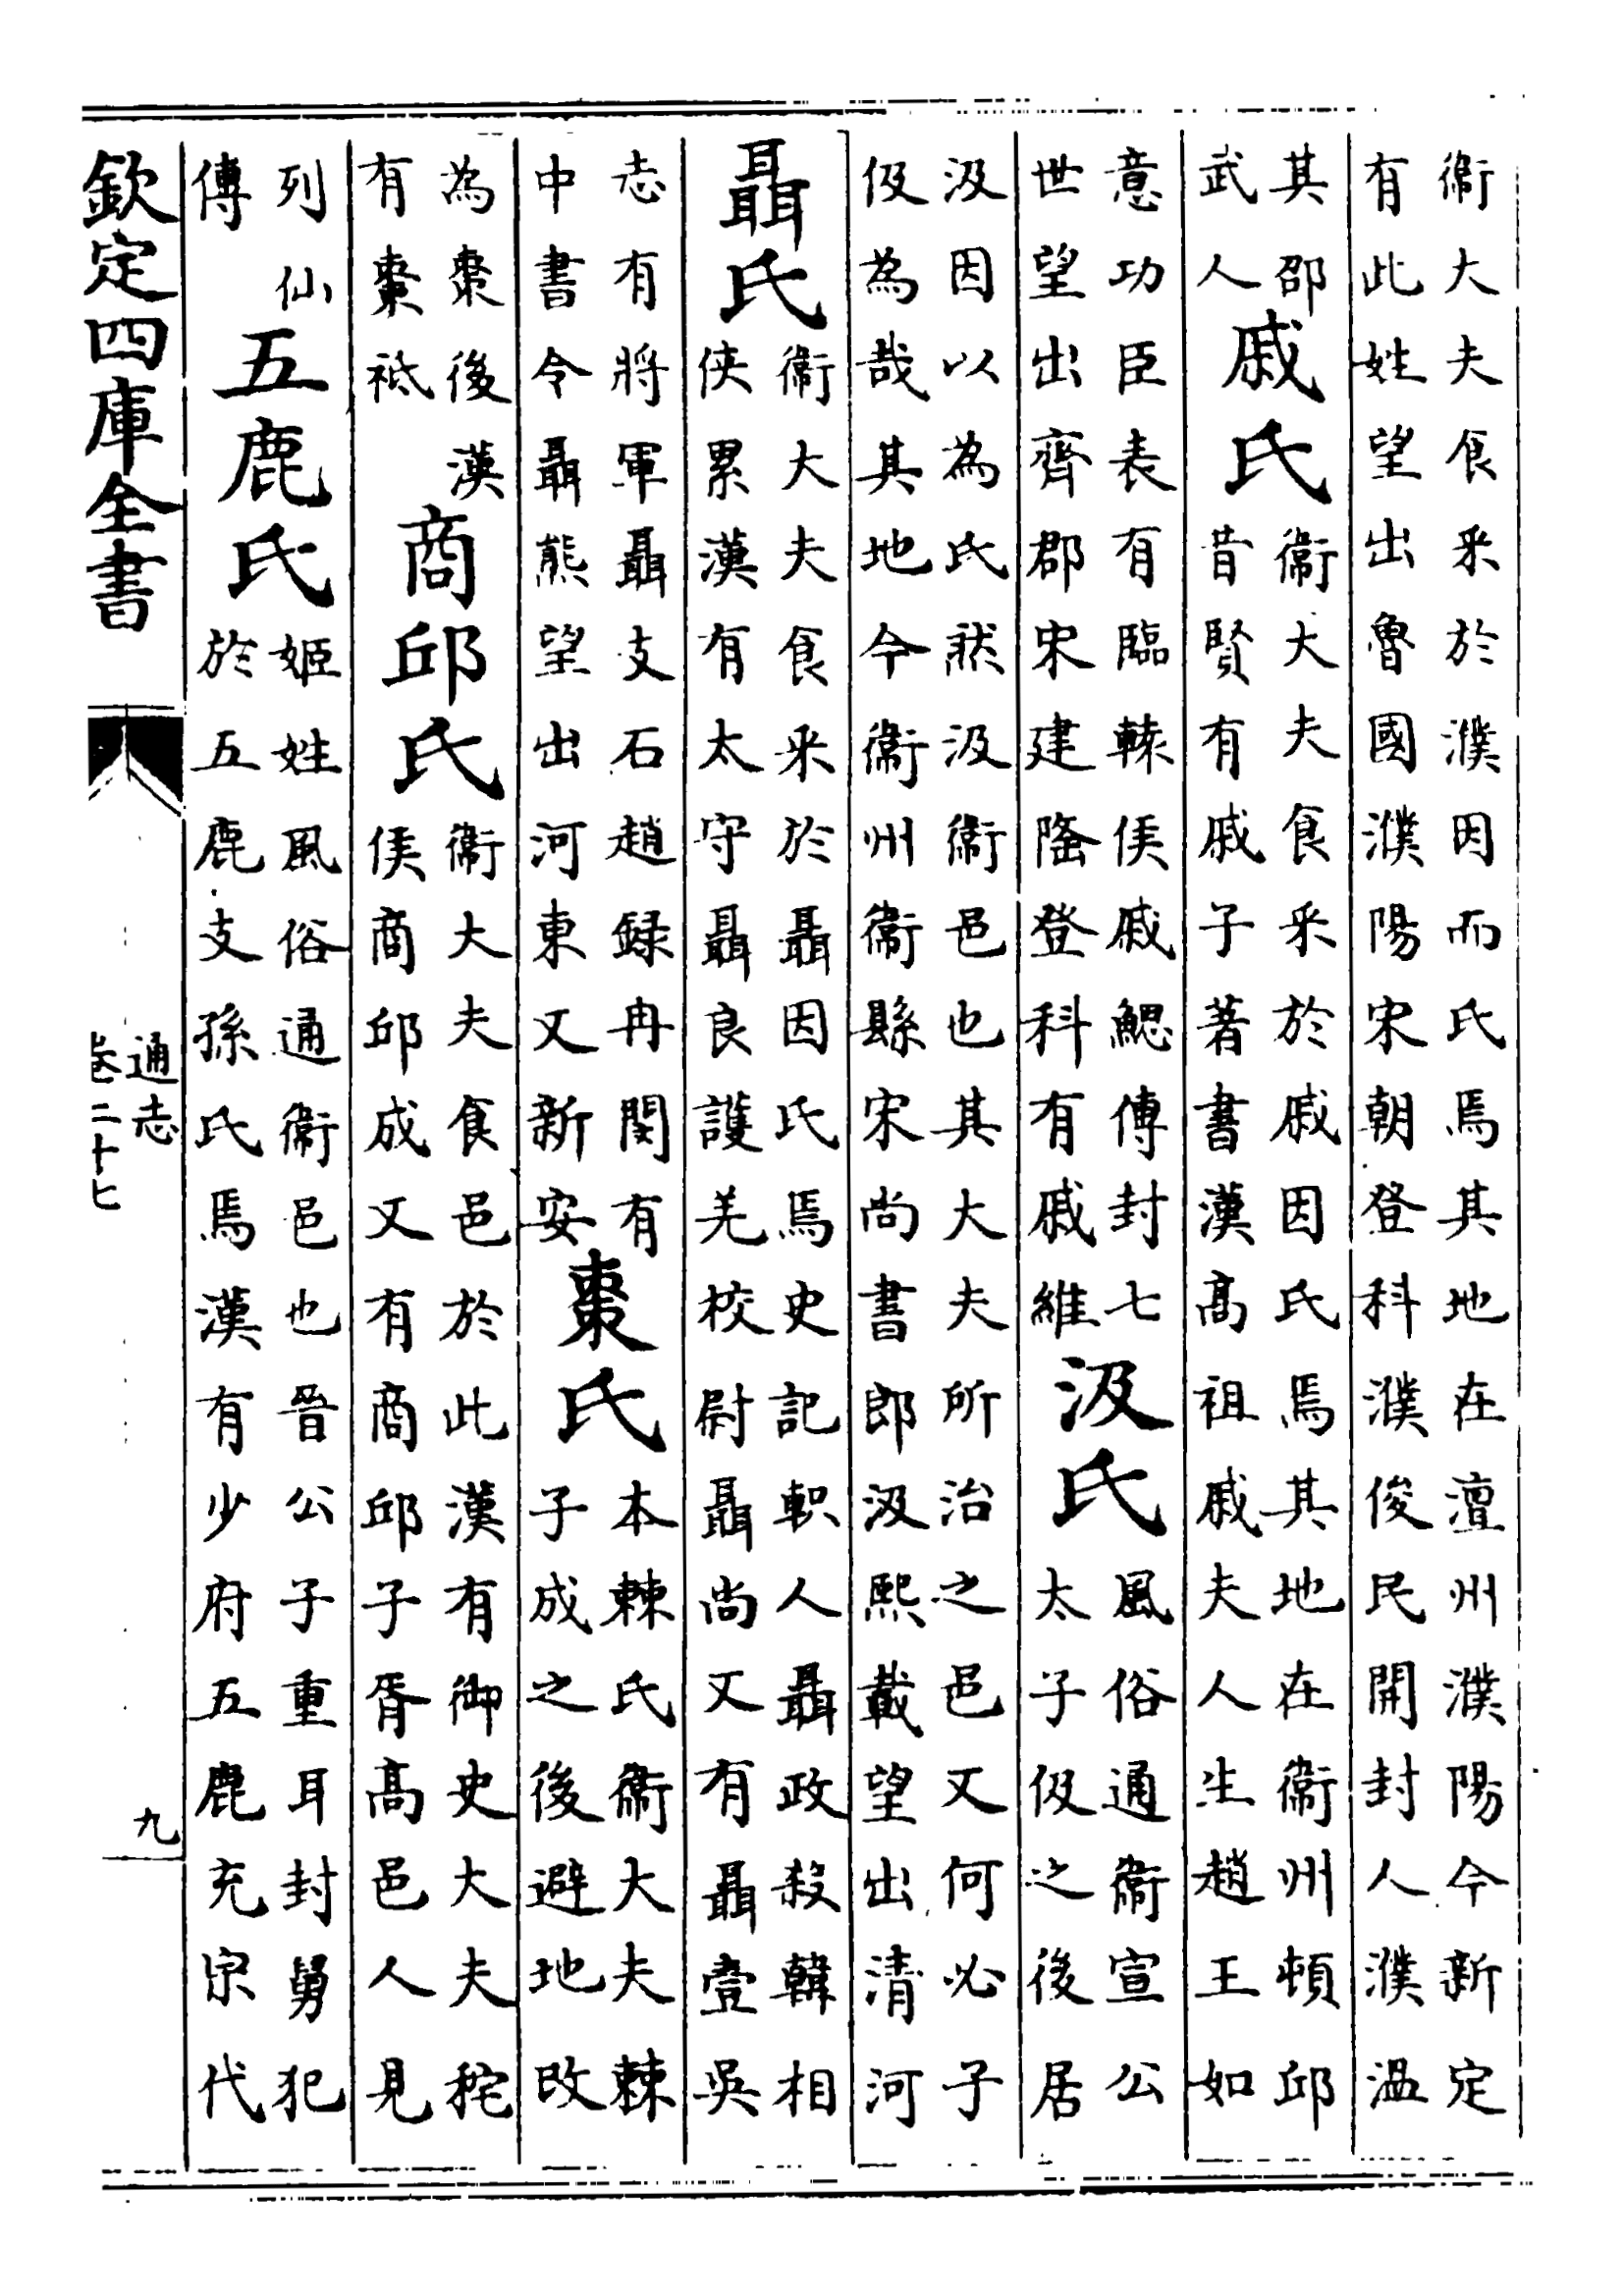 衞大夫食采於濮因而氏焉其地在澶州濮陽今新定
有此姓望出魯國濮陽宋朝登科濮俊民開封人濮温
其邵
武人
戚氏
衞大夫食采於戚因氏焉其地在衞州頓邱
昔賢有戚子著書漢髙祖戚夫人生趙王如
意功臣表有臨轅侯戚鰓傳封七
世望出齊郡宋建隆登科有戚維
汲氏
風俗通衞宣公
太子伋之後居
汲因以為氏然汲衞邑也其大夫所治之邑又何必子
伋為哉其地今衞州衞縣宋尚書郎汲熙載望出清河
聶氏
衞大夫食采於聶因氏焉史記軹人聶政殺韓相
俠累漢有太守聶良護羌校尉聶尚又有聶壹吳
志有將軍聶支石趙録冉閔有
中書令聶熊望出河東又新安
棗氏
本棘氏衞大夫棘
子成之後避地改
為棗後漢
有棗祗
商邱氏
衞大夫食邑於此漢有御史大夫秺
侯商邱成又有商邱子胥髙邑人見
列仙
傳
五鹿氏
姬姓風俗通衞邑也晉公子重耳封舅犯
於五鹿支孫氏焉漢有少府五鹿充宗代
欽定四庫全書
通志
卷二十七
九